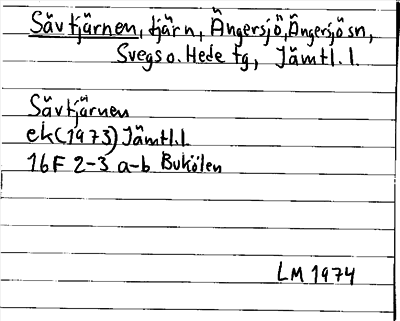 Sävtjärnen, tjärn, Ängersjö, Ängersjö sn,
Svegs o. Hede tg, Jämtl. l.
Sävtjärnen
ek (1973) Jämtl. l
16F 2-3 a-b Bukölen
LM 1974